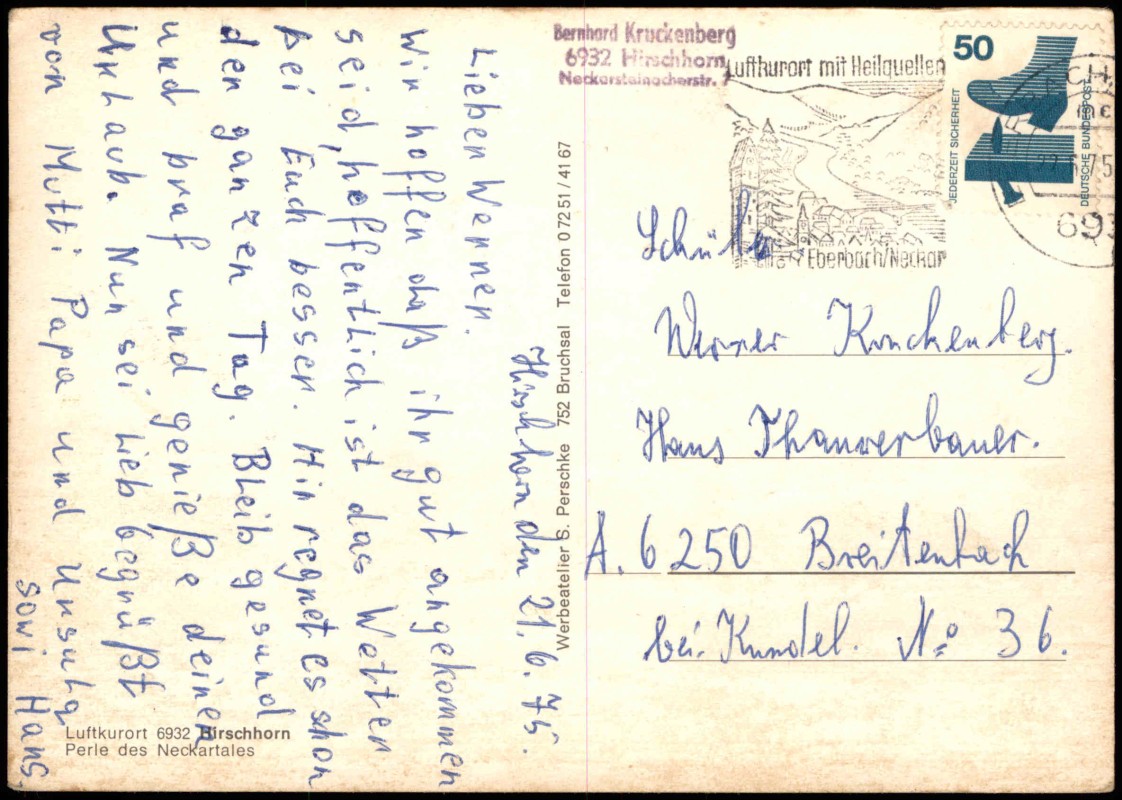 Bernhard Kruckenberg
6932 Hirschhorn
Neckarsteinacherstr. 7
Luftkurort mit Heilquellen
Eberbach/Neckar
50
JEDERZEIT SICHERHEIT
DEUTSCHE BUNDESPOST
693
Hirschhorn den 21. 6. 75.
Lieber Werner.
Wir hoffen daß ihr gut angekommen
seid, hoffentlich ist das Wetter
bei Euch besser. Hir regnet es schon
den ganzen Tag. Bleib gesund
und braf und genieße deinen
Urlaub. Nun sei lieb begrüßt
von Mutti Papa und Ursula
sowi Hans.
Werbeatelier S. Perschke 752 Bruchsal Telefon 0 72 51 / 41 67
Schüler
Werner Kruckenberg.
Hans Thanrerbauer.
A. 6250 Breitenbach
bei. Kundel. No 36.
Luftkurort 6932 Hirschhorn
Perle des Neckartales